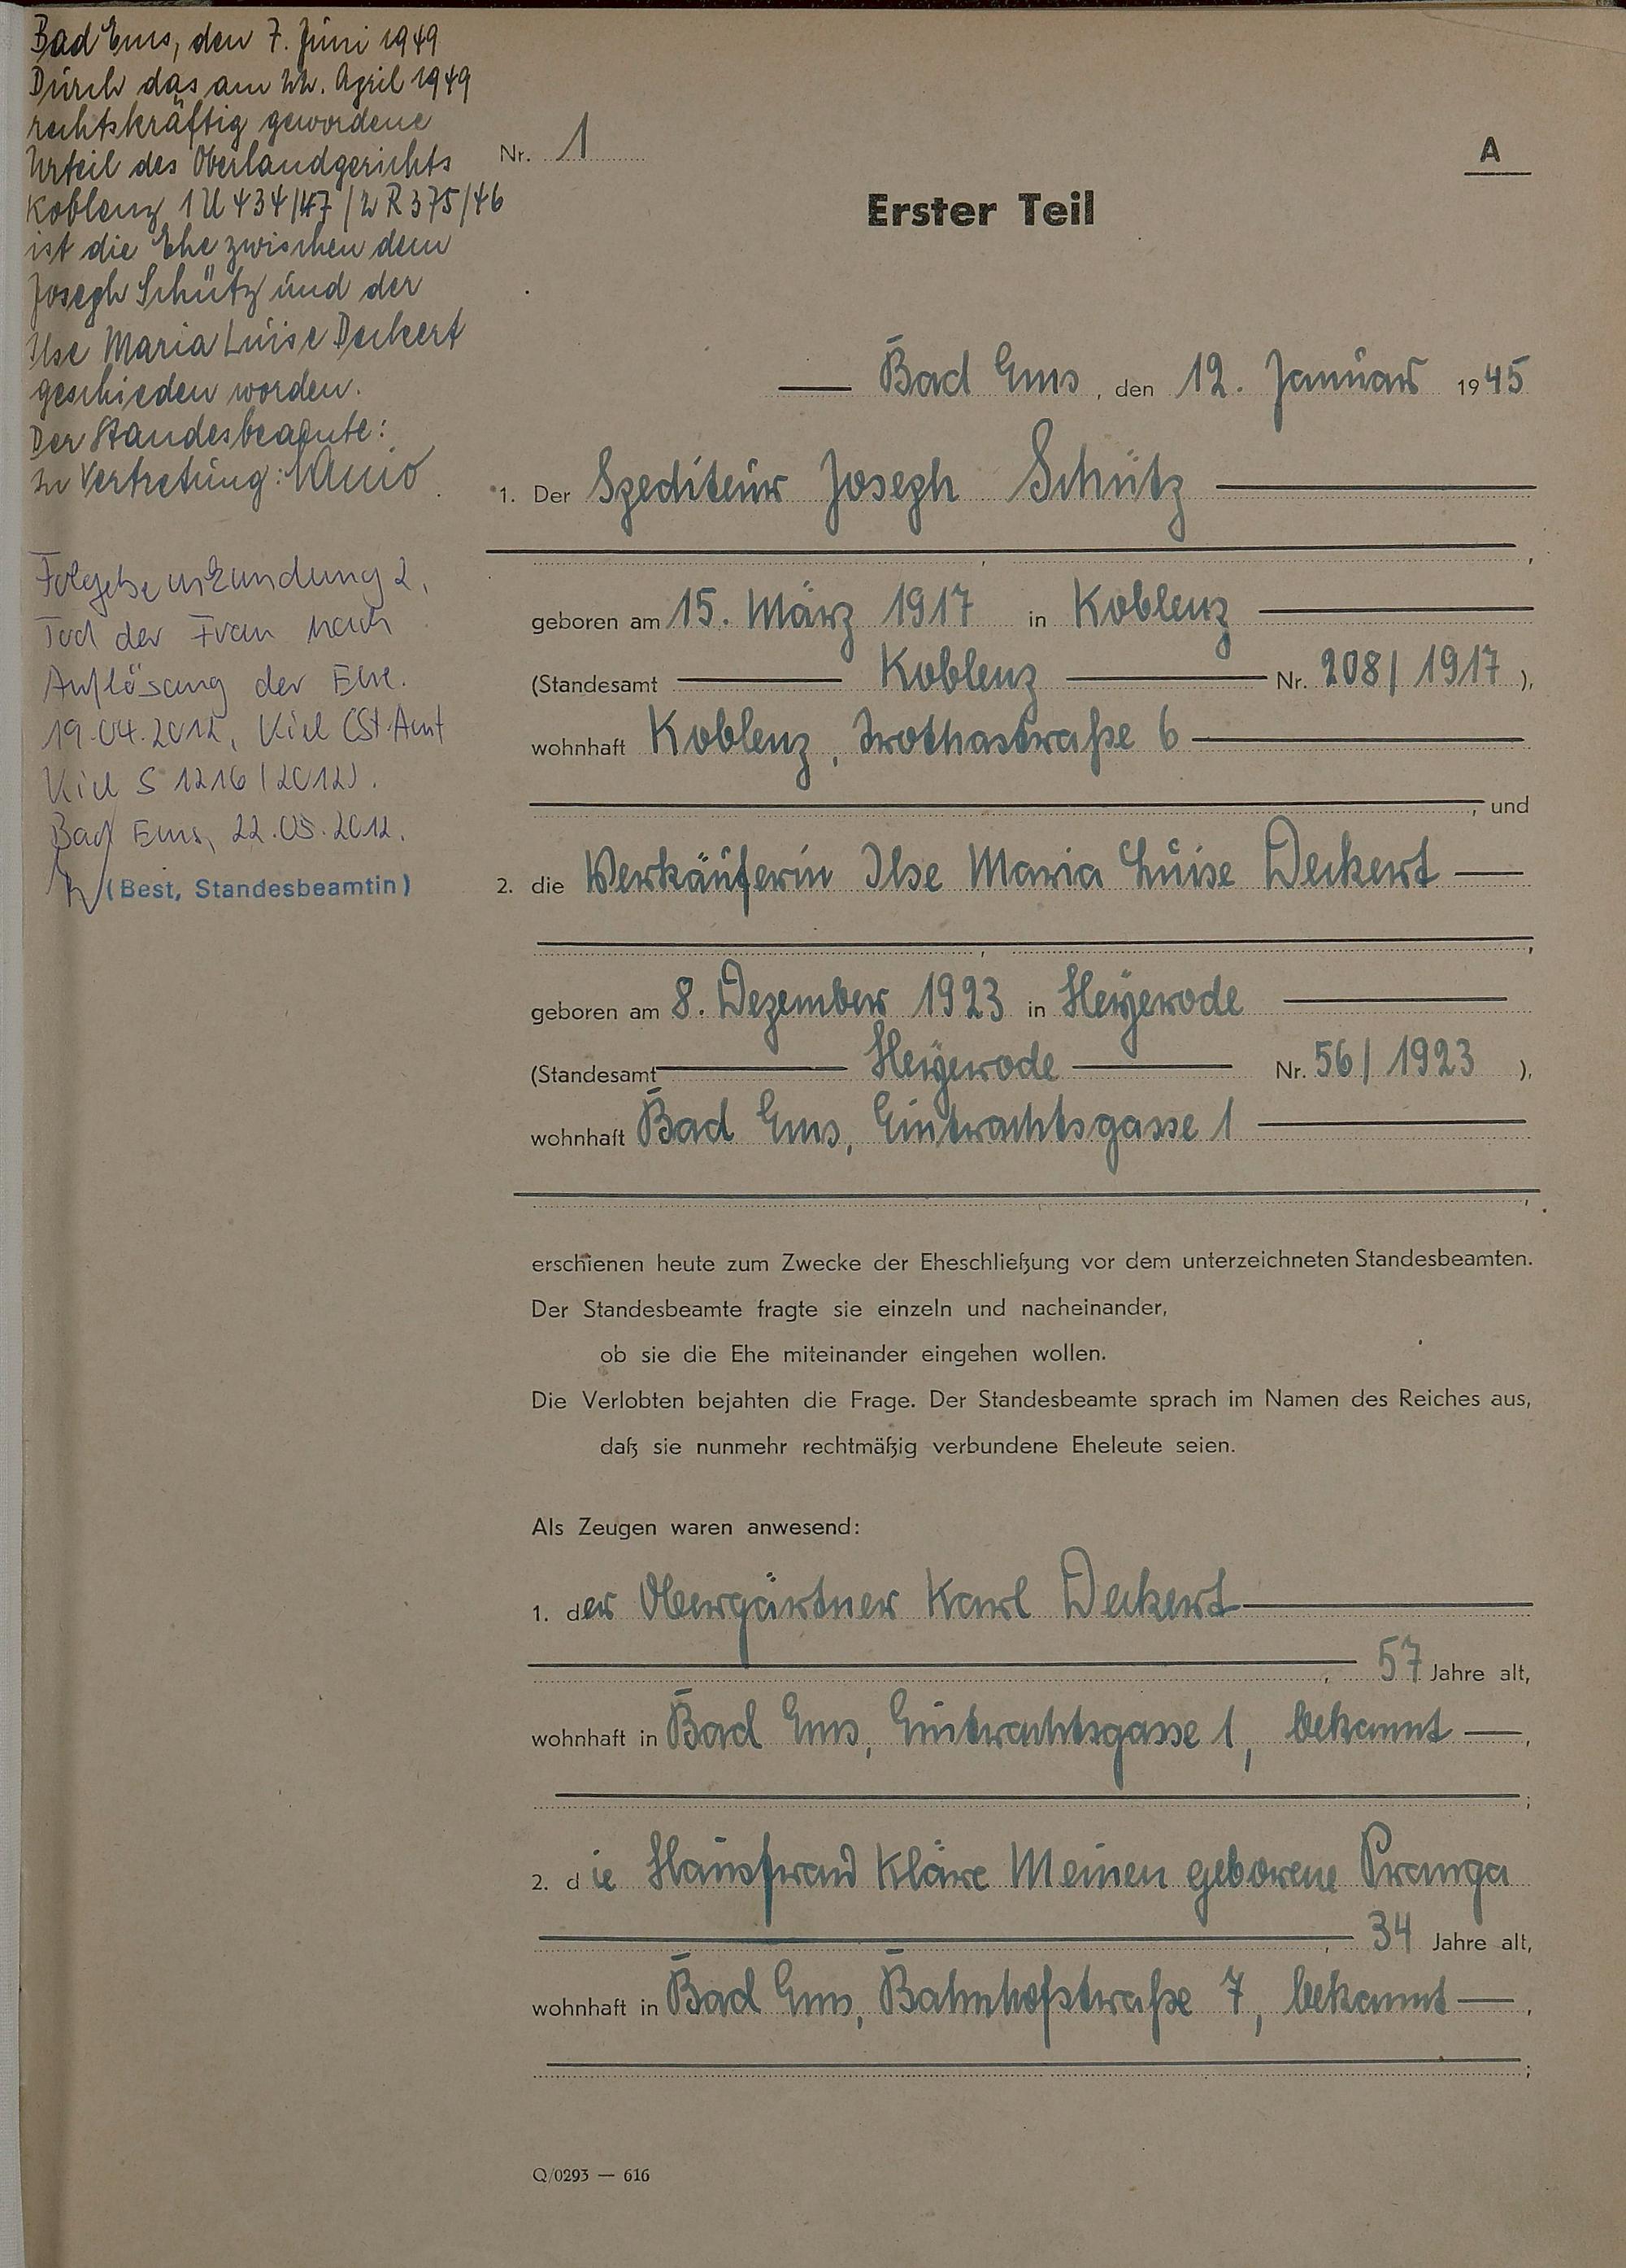 Bad Ems, den 7. Juni 1949
Durch das am 22. April 1949
rechtskräftig gewordene
Urteil des Oberlandgerichts
Koblenz 1 U 434/47 / 2 R 375/46
ist die Ehe zwischen dem
Joseph Schütz und der
Ilse Maria Luise Deckert
geschieden worden.
Der Standesbeamte:
In Vertretung:
Folgebeurkundung 2,
Tod der Frau nach
Auflösung der Ehe.
19.04.2012, Kiel (StAmt
Kiel S 1216/2012).
Bad Ems, 22.05.2012.
(Best, Standesbeamtin)
Nr. 1
A
Erster Teil
Bad Ems, den 12. Januar 1945
1. Der Spediteur Joseph Schütz
geboren am 15. März 1917 in Koblenz
(Standesamt Koblenz Nr. 208/1917),
wohnhaft Koblenz, Trothastraße 6
, und
2. die Verkäuferin Ilse Maria Luise Deckert
geboren am 8. Dezember 1923 in Heyerode
(Standesamt Heyerode Nr. 56/1923),
wohnhaft Bad Ems, Eintrachtsgasse 1
erschienen heute zum Zwecke der Eheschließung vor dem unterzeichneten Standesbeamten.
Der Standesbeamte fragte sie einzeln und nacheinander,
ob sie die Ehe miteinander eingehen wollen.
Die Verlobten bejahten die Frage. Der Standesbeamte sprach im Namen des Reiches aus,
daß sie nunmehr rechtmäßig verbundene Eheleute seien.
Als Zeugen waren anwesend:
1. der Obergärtner Karl Deckert
, 57 Jahre alt,
wohnhaft in Bad Ems, Eintrachtsgasse 1, bekannt,
;
2. die Hausfrau Kläre Meinen geborene Pranga
, 34 Jahre alt,
wohnhaft in Bad Ems, Bahnhofstraße 7, bekannt,
;
Q/0293 — 616